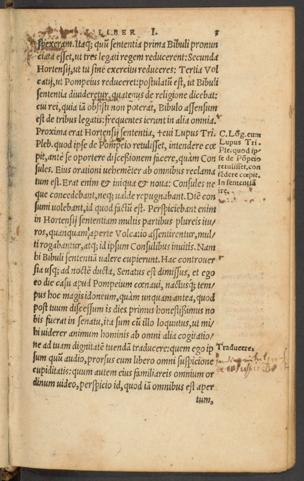 LIBER I. 8
spexeram. Itaq; quũ sententia prima Bibuli pronun
ciata esset, ut tres legati regem reducerent: Secunda
Hortensij, ut tu sine exercitu reduceres: Tertia Vol
catij, ut Pompeius reduceret: postulatũ est, ut Bibuli
sententia diuideretur, quatenus de religione dicebat:
cui rei, quia iã obsisti non poterat, Bibulo assensum
est de tribus legatis: frequentes ierunt in alia omnia.
Proxima erat Hortensij sententia, cui Lupus Tri.
Pleb. quod ipse de Pompeio retulisset, intendere cœ
pit, ante se oportere discessionem facere, quàm Con
sules. Eius orationi uehemẽter ab omnibus reclama
tum est. Erat enim & iniqua & noua: Consules ne
que concedebant, neq; ualde repugnabant. Diẽ con
sumi uolebant, id quod factũ est. Perspiciebant enim
in Hortensij sententiam multis partibus plureis itu/
ros, quanquam aperte Volcatio assentirentur, mul/
ti rogabantur, atq; id ipsum Consulibus inuitis. Nam
hi Bibuli sententiã ualere cupierunt. Hac controuer
sia usq; ad noctẽ ducta, Senatus est dimissus, et ego
eo die casu apud Pompeium cœnaui, nactusq; tem/
pus hoc magis idoneum, quàm unquam antea, quod
post tuum discessum is dies primus honestissimus no
bis fuerat in senatu, ita sum cũ illo loquutus, ut mi/
hi uiderer animum hominis ab omni alia cogitatio/
ne ad tuam dignitatẽ tuendã traducere: quem ego ip
sum quũ audio, prorsus eum libero omni suspicione
cupiditatis: quum autem eius familiareis omnium or
dinum uideo, perspicio id, quod iã omnibus est aper
tum,
C. Lõg. cum
Lupus Tri
Ple. quod ip
se de Põpeio
retulisset, con
tẽdere cœpit.
In sententiã
ire.
Traducere.